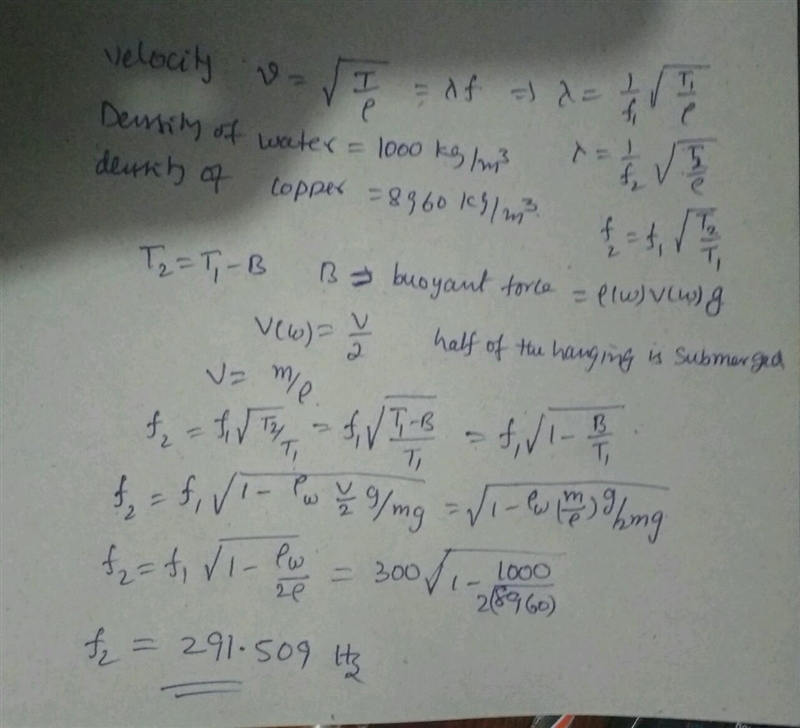 Velocity v = √(T/ρ) = λf ⇒ λ = 1/f₁ √(T₁/ρ)
Density of water = 1000 kg/m³ λ = 1/f₂ √(T₂/ρ)
density of copper = 8960 kg/m³ f₂ = f₁ √(T₂/T₁)
T₂ = T₁ - B B ⇒ buoyant force = ρ(w) V(w) g
V(w) = V/2 half of the hanging is submerged
V = m/ρ
f₂ = f₁ √(T₂/T₁) = f₁ √((T₁-B)/T₁) = f₁ √(1 - B/T₁)
f₂ = f₁ √(1 - ρw V/2 g/mg) = √(1 - ρw (m/ρ) g/2mg)
f₂ = f₁ √(1 - ρw/2ρ) = 300 √(1 - 1000/2(8960))
f₂ = 291.509 Hz